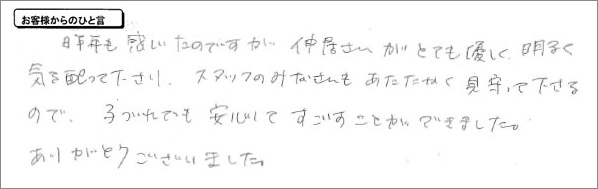 お客様からのひと言
昨年も感じたのですが 仲居さんがとても優しく、明るく
気を配って下さり、スタッフのみなさんもあたたかく見守って下さる
ので、子づれでも安心してすごすことができました。
ありがとうございました。